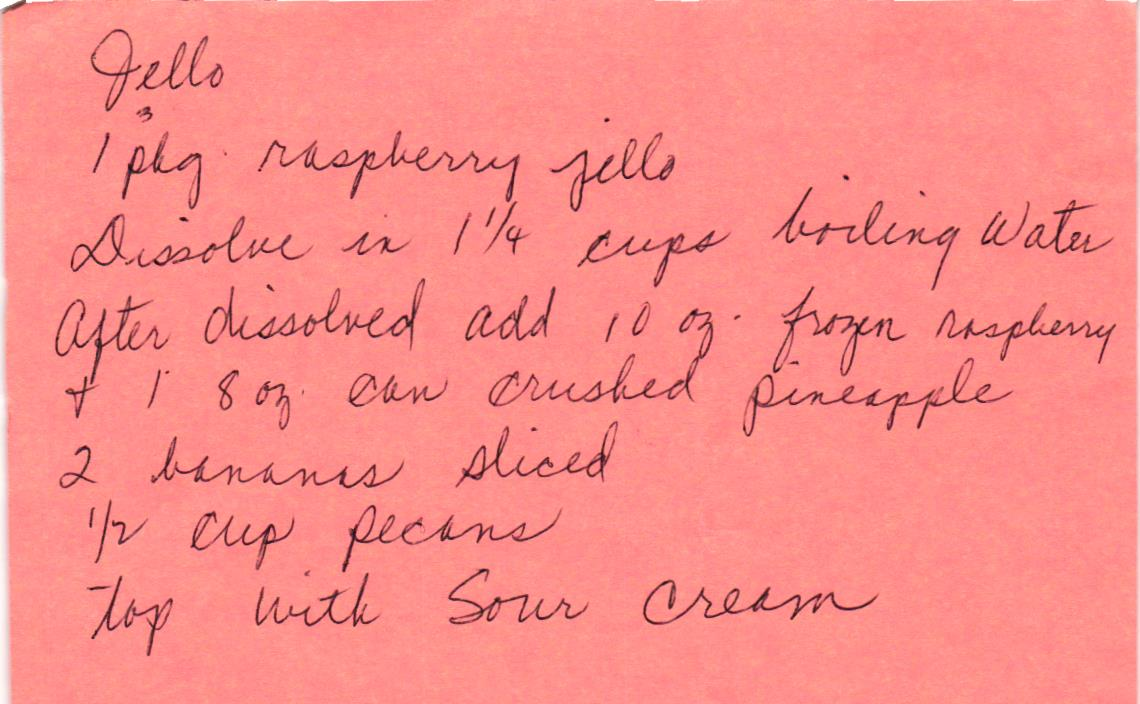 Jello
3
1 pkg. raspberry jello
Dissolve in 1 1/4 cups boiling Water
After dissolved add 10 oz. frozen raspberry
+ 1 8 oz. can crushed pineapple
2 bananas sliced
1/2 cup pecans
top with Sour Cream